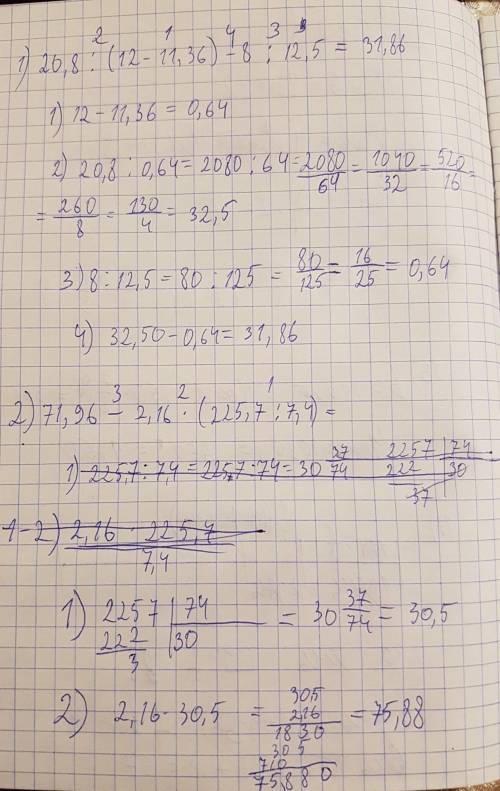 2 1 4 3
1) 20,8 : (12 - 11,36) - 8 : 12,5 = 31,86
1) 12 - 11,36 = 0,64
2) 20,8 : 0,64 = 2080 : 64 = 2080/64 = 1040/32 = 520/16 =
= 260/8 = 130/4 = 32,5
3) 8 : 12,5 = 80 : 125 = 80/125 = 16/25 = 0,64
4) 32,50 - 0,64 = 31,86
3 2 1
2) 71,96 - 2,16 · (225,7 : 7,4) =
1) 225,7 : 7,4 = 2257 : 74 = 30 37/74 2257 | 74
222 | 30
37
1-2) 2,16 · 225,7
7,4
1) 2257 | 74 = 30 37/74 = 30,5
222 | 30
3
2) 2,16 · 30,5 = 305 = 75,88
216
1830
305
710
75,880